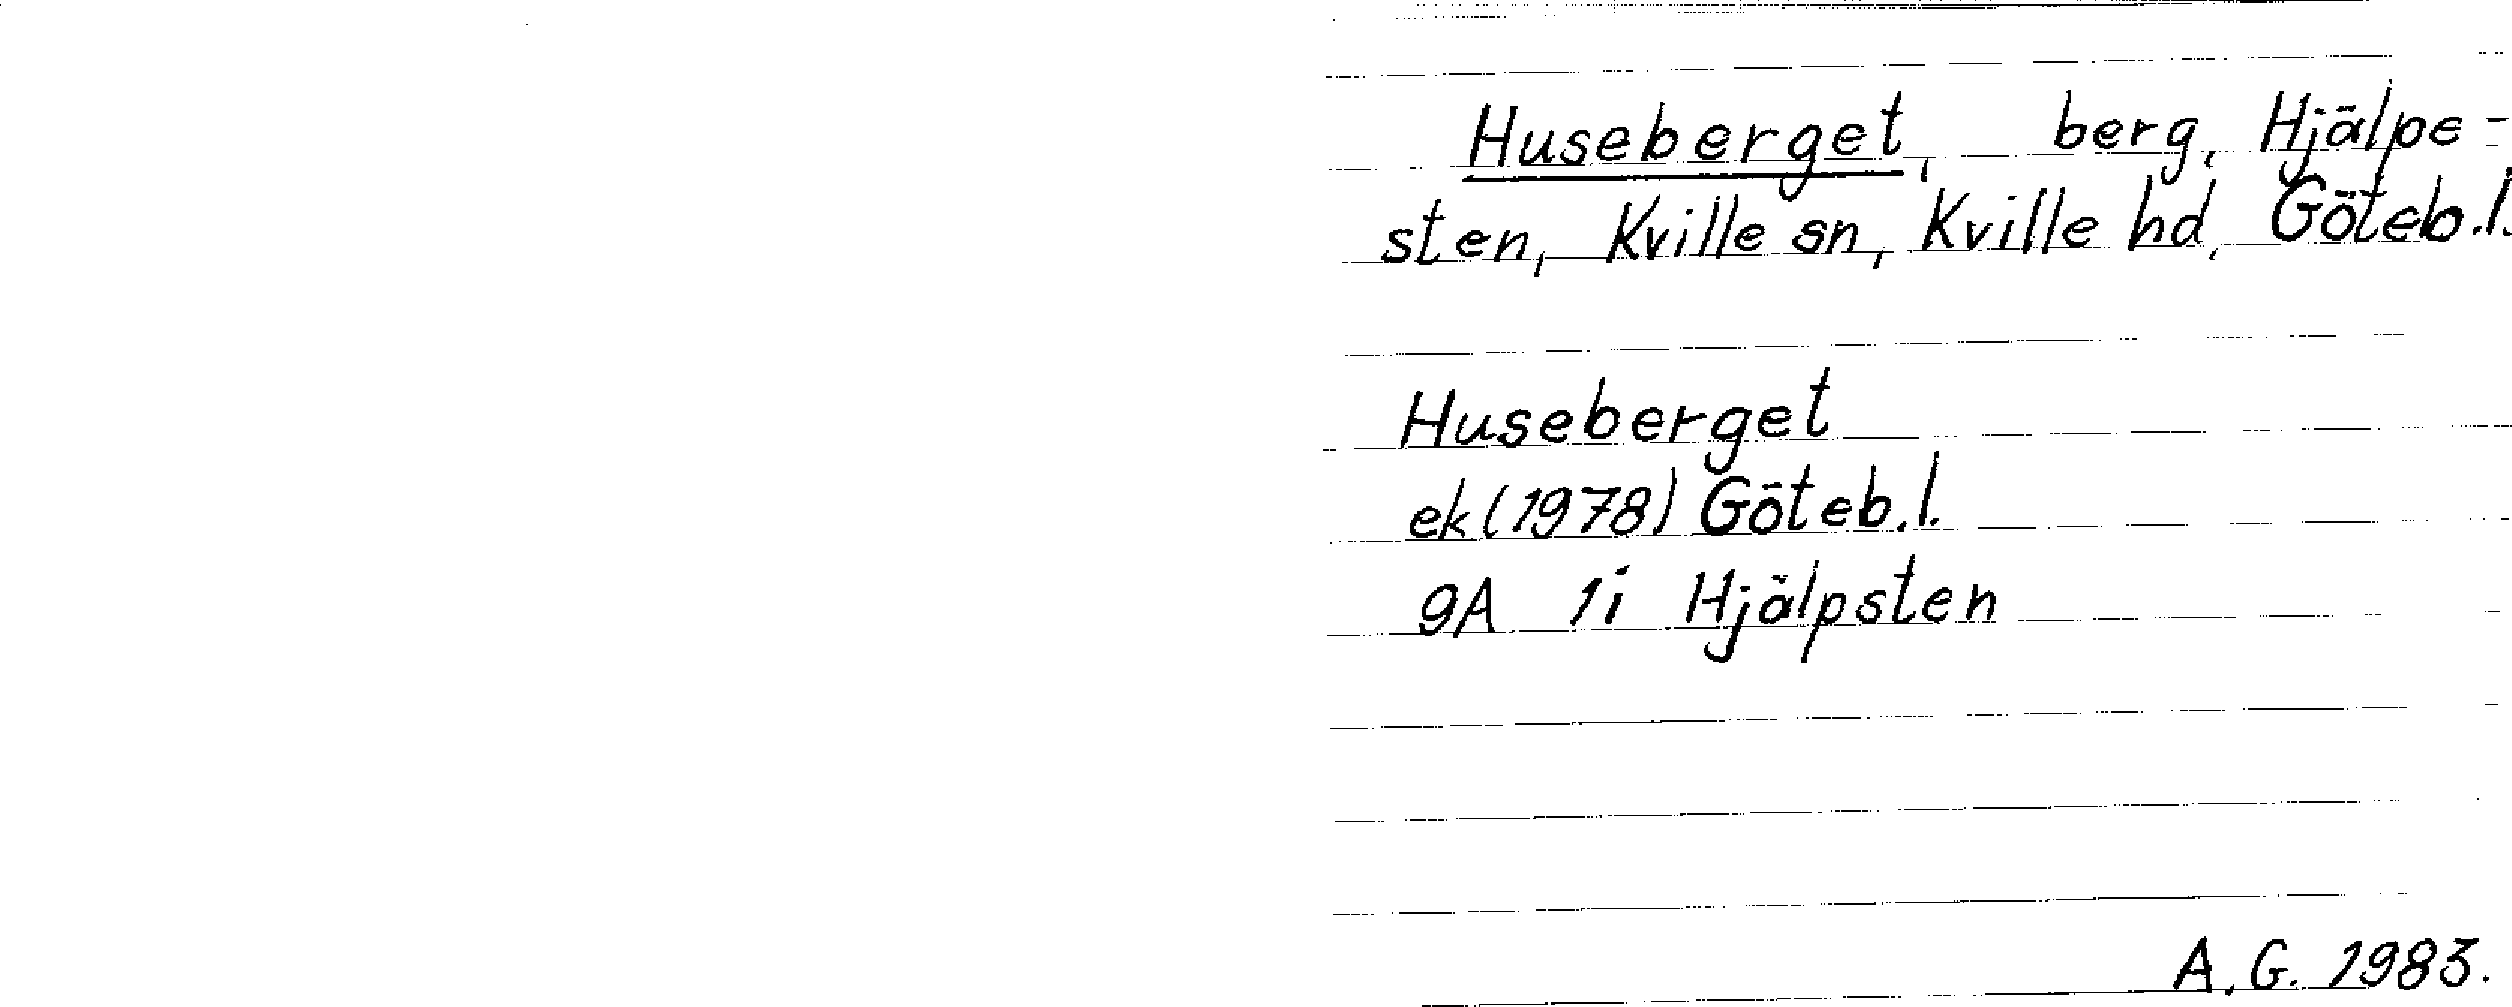 Huseberget, berg, Hjälpe-
sten, Kville sn, Kville hd, Göteb.l.
Huseberget
ek (1978) Göteb.l.
9A 1i Hjälpsten
A.G. 1983.